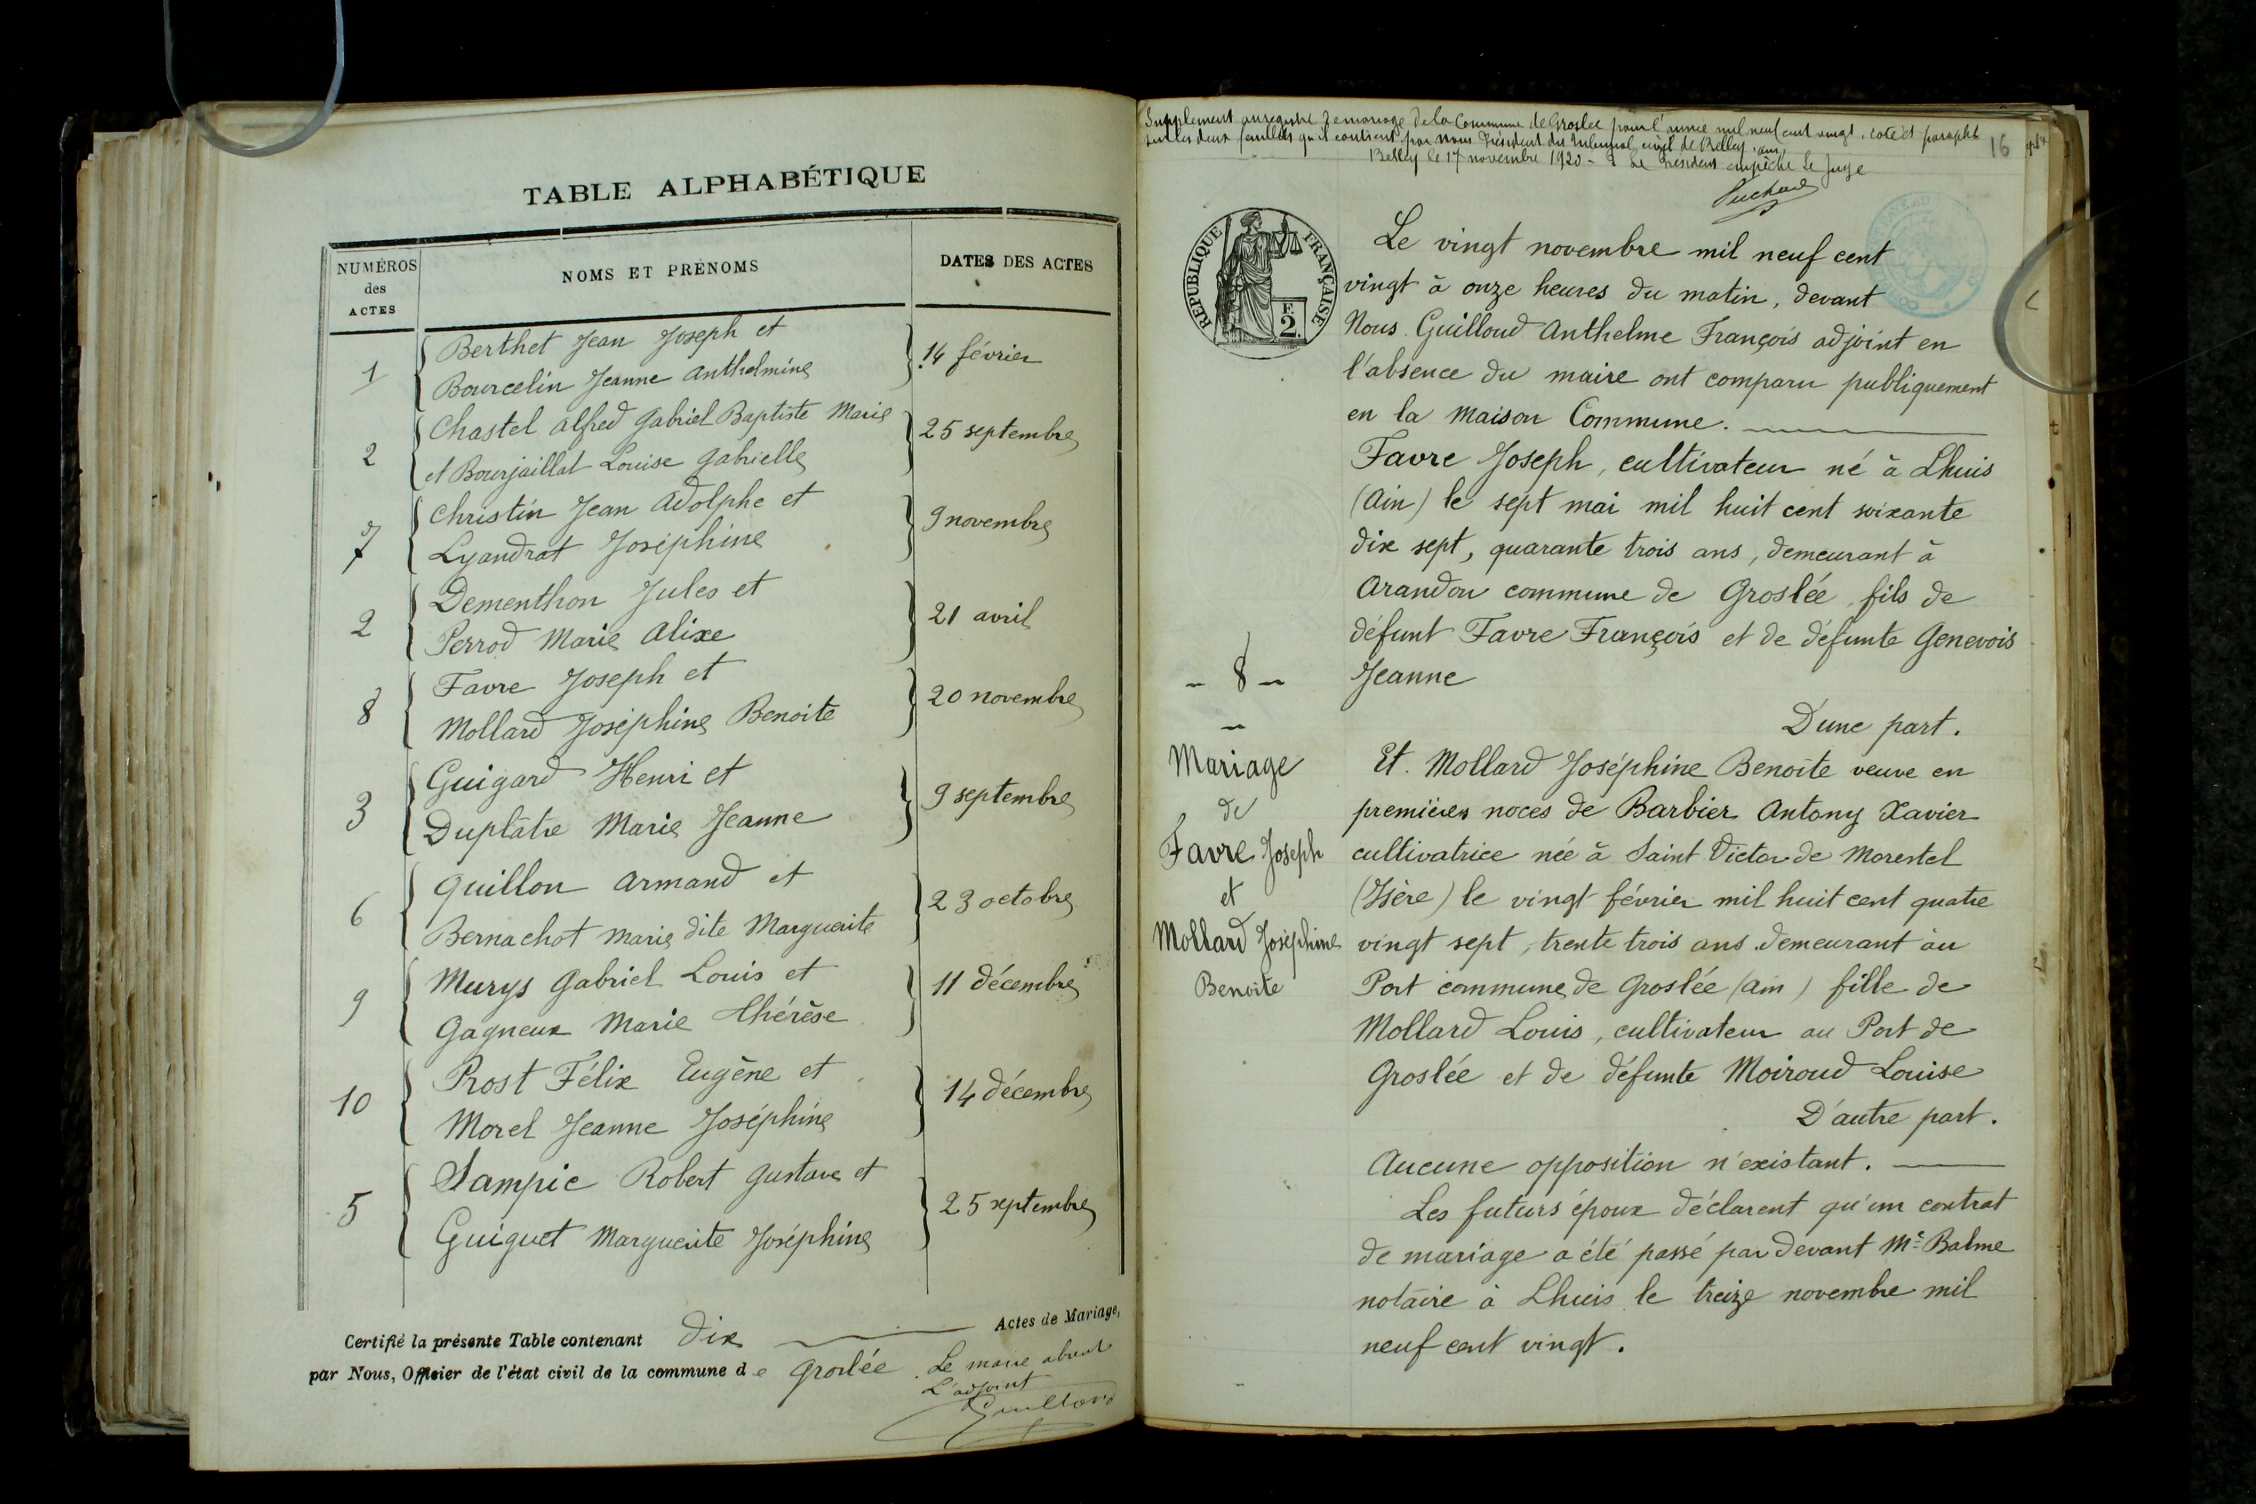 TABLE ALPHABÉTIQUE
NUMÉROS
des
ACTES
NOMS ET PRÉNOMS
DATES DES ACTES
1
Berthet Jean Joseph et
Bourcelin Jeanne Anthelmine
14 février
2
Chastel Alfred Gabriel Baptiste Marie
et Bourjaillat Louise Gabrielle
25 septembre
7
Christin Jean Adolphe et
Lyandrat Joséphine
9 novembre
2
Dementhon Jules et
Perrod Marie Alixe
21 avril
8
Favre Joseph et
Mollard Joséphine Benoite
20 novembre
3
Guigard Henri et
Duplâtre Marie Jeanne
9 septembre
6
Guillon Armand et
Bernachot Marie dite Marguerite
23 octobre
9
Murys Gabriel Louis et
Gagneux Marie Thérèse
11 décembre
10
Prost Félix Eugène et
Morel Jeanne Joséphine
14 décembre
5
Sampic Robert Gustave et
Guiguet Marguerite Joséphine
25 septembre
Certifié la présente Table contenant dix Actes de Mariage,
par Nous, Officier de l'état civil de la commune de Groslée. Le maire absent
L'adjoint
Guilloud
Supplément au registre de mariage de la Commune de Groslée pour l'année mil neuf cent vingt, coté et paraphé
sur les deux feuillets qu'il contient par nous Président du Tribunal civil de Belley, Ain,
Belley le 17 novembre 1920 - Le Président empêché Le Juge
16
RÉPUBLIQUE FRANÇAISE
F.
2
Le vingt novembre mil neuf cent
vingt à onze heures du matin, devant
Nous Guilloud Anthelme François adjoint en
l'absence du maire ont comparu publiquement
en la Maison Commune.
Favre Joseph, cultivateur né à Lhuis
(Ain) le sept mai mil huit cent soixante
dix sept, quarante trois ans, demeurant à
Arandon commune de Groslée, fils de
défunt Favre François et de défunte Genevois
Jeanne
D'une part.
- 8 -
Mariage
de
Favre Joseph
et
Mollard Joséphine
Benoite
Et. Mollard Joséphine Benoîte veuve en
premières noces de Barbier Antony Xavier
cultivatrice née à Saint Victor de Morestel
(Isère) le vingt février mil huit cent quatre
vingt sept, trente trois ans demeurant au
Port commune de Groslée (Ain) fille de
Mollard Louis, cultivateur au Port de
Groslée et de défunte Moiroud Louise
D'autre part.
Aucune opposition n'existant.
Les futurs époux déclarent qu'un contrat
de mariage a été passé par devant Me Balme
notaire à Lhuis le treize novembre mil
neuf cent vingt.